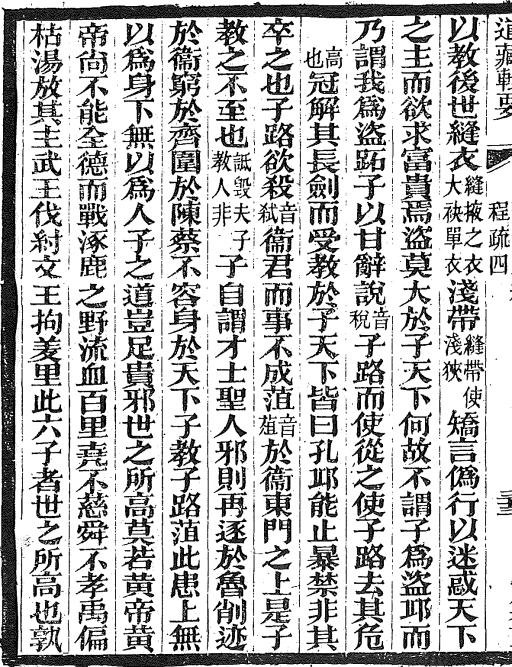 道藏輯要 程疏四
以教後世縫衣縫掖之衣大袂單衣淺帶縫帶使淺狹矯言僞行以迷惑天下
之主而欲求富貴焉盜莫大於子天下何故不謂子爲盜耶而
乃謂我爲盜跖子以甘辭說音稅子路而使從之使子路去其危
高也冠解其長劍而受教於子天下皆曰孔耶能止暴禁非其
卒之也子路欲殺音弑衞君而事不成菹音葅於衞東門之上是子
教之不至也詆毀夫子教人非子自謂才士聖人邪則再逐於魯削迹
於衞窮於齊圍於陳蔡不容身於天下子教子路菹此患上無
以爲身下無以爲人子之道豈足貴邪世之所高莫若黄帝黄
帝尙不能全德而戰涿鹿之野流血百里堯不慈舜不孝禹偏
枯湯放其主武王伐紂文王拘羑里此六子者世之所高也孰